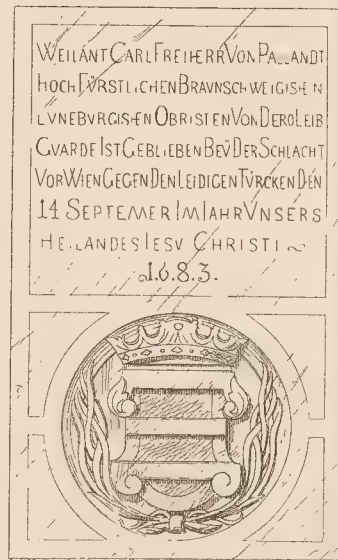 WEILANT CARL FREIHERR VON PALLANDT
HOCH FÜRSTLICHEN BRAVNSCHWEIGISHEN
LVNEBVRGISHEN OBRISTEN VON DERO LEIB
GVARDE IST GEBLIEBEN BEŸ DER SCHLACHT
VOR WIEN GEGEN DEN LEIDIGEN TÜRCKEN DEN
14 SEPTEMER IM IAHR VNSERS
HEILANDES IESV CHRISTI ~
.1.6.8.3.